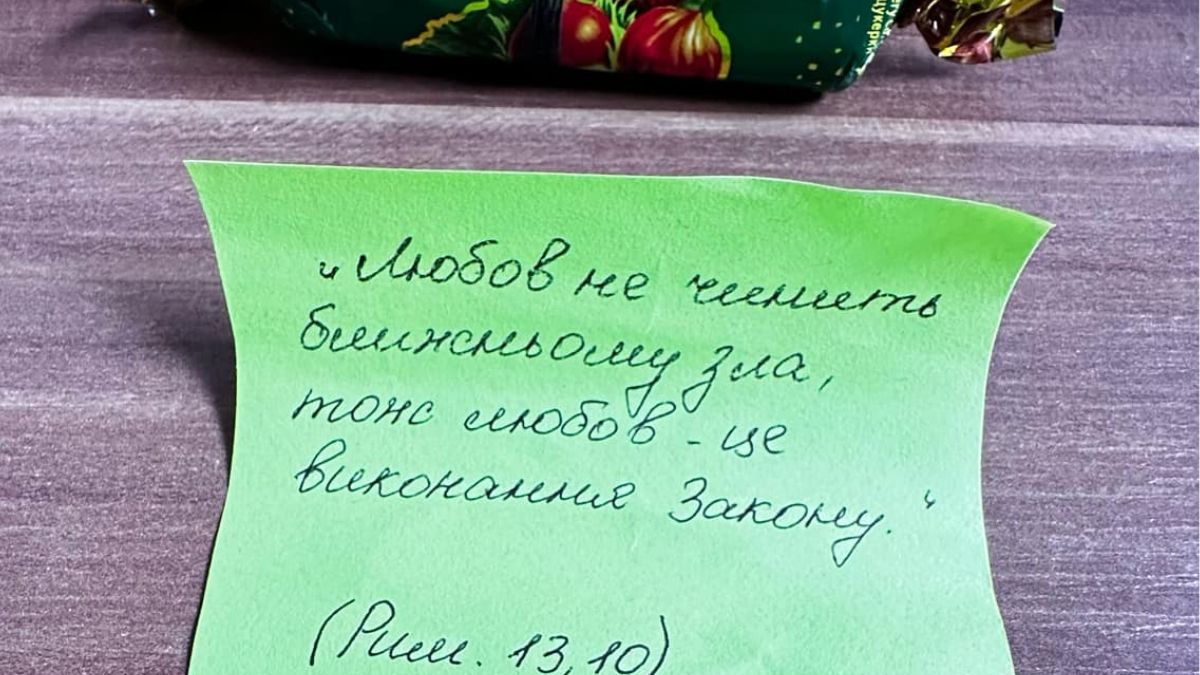 цукерки
„Любов не чинить
ближньому зла,
тож любов - це
виконання Закону."
(Рим. 13,10)